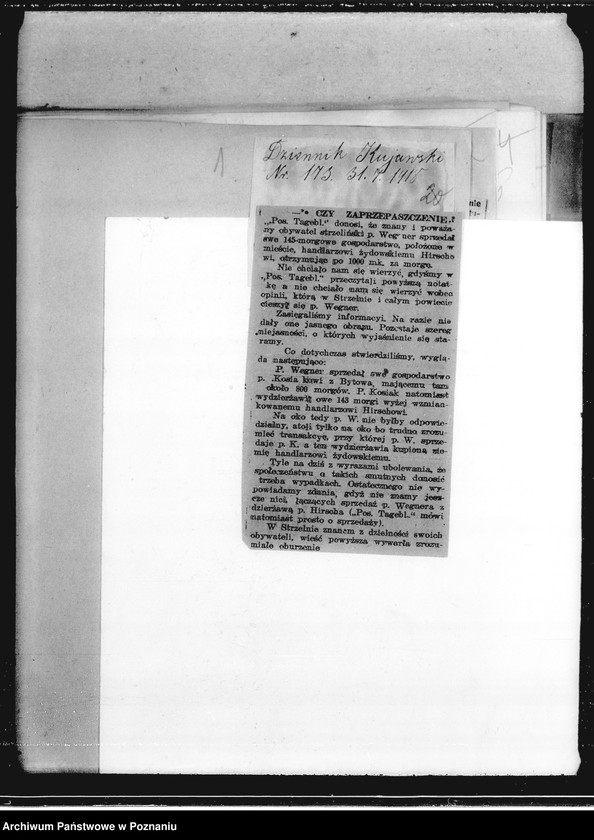 Dziennik Kujawski
Nr. 173. 31. 7. 1918
20
1
nie
—** CZY ZAPRZEPASZCZENIE?
„Pos. Tagebl.“ donosi, że znany i poważa-
ny obywatel strzeliński p. Wegner sprzedał
swe 145-morgowe gospodarstwo, położone w
mieście, handlarzowi żydowskiemu Hirscho
wi, otrzymując po 1000 mk. za morgę.
Nie chciało nam się wierzyć, gdyśmy w
„Pos. Tagebl.“ przeczytali powyższą notat-
kę a nie chciało nam się wierzyć wobec
opinii, którą w Strzelnie i całym powiecie
cieszył się p. Wegner.
Zasięgaliśmy informacyi. Na razie nie
dały one jasnego obrazu. Pozostaje szereg
niejasności, o których wyjaśnienie się sta-
ramy.
Co dotychczas stwierdziliśmy, wyglą-
da następująco:
P. Wegner sprzedał swe gospodarstwo
p. Kosiakowi z Bytowa, mającemu tam
około 800 morgów. P. Kosiak natomiast
wydzierżawił owe 143 morgi wyżej wzmian-
kowanemu handlarzowi Hirschowi.
Na oko tedy p. W. nie byłby odpowie-
dzialny, atoli tylko na oko bo trudno zrozu-
mieć transakcyę, przy której p. W. sprze-
daje p. K. a ten wydzierżawia kupioną zie-
mię handlarzowi żydowskiemu.
Tyle na dziś z wyrazami ubolewania, że
społeczeństwu o takich smutnych donosić
trzeba wypadkach. Ostatecznego nie wy-
powiadamy zdania, gdyż nie znamy jesz-
cze nici, łączących sprzedaż p. Wegnera z
dzierżawą p. Hirscha („Pos. Tagebl.“ mówi
natomiast prosto o sprzedaży).
W Strzelnie znanem z dzielności swoich
obywateli, wieść powyższa wywarła zrozu-
miałe oburzenie
Archiwum Państwowe w Poznaniu